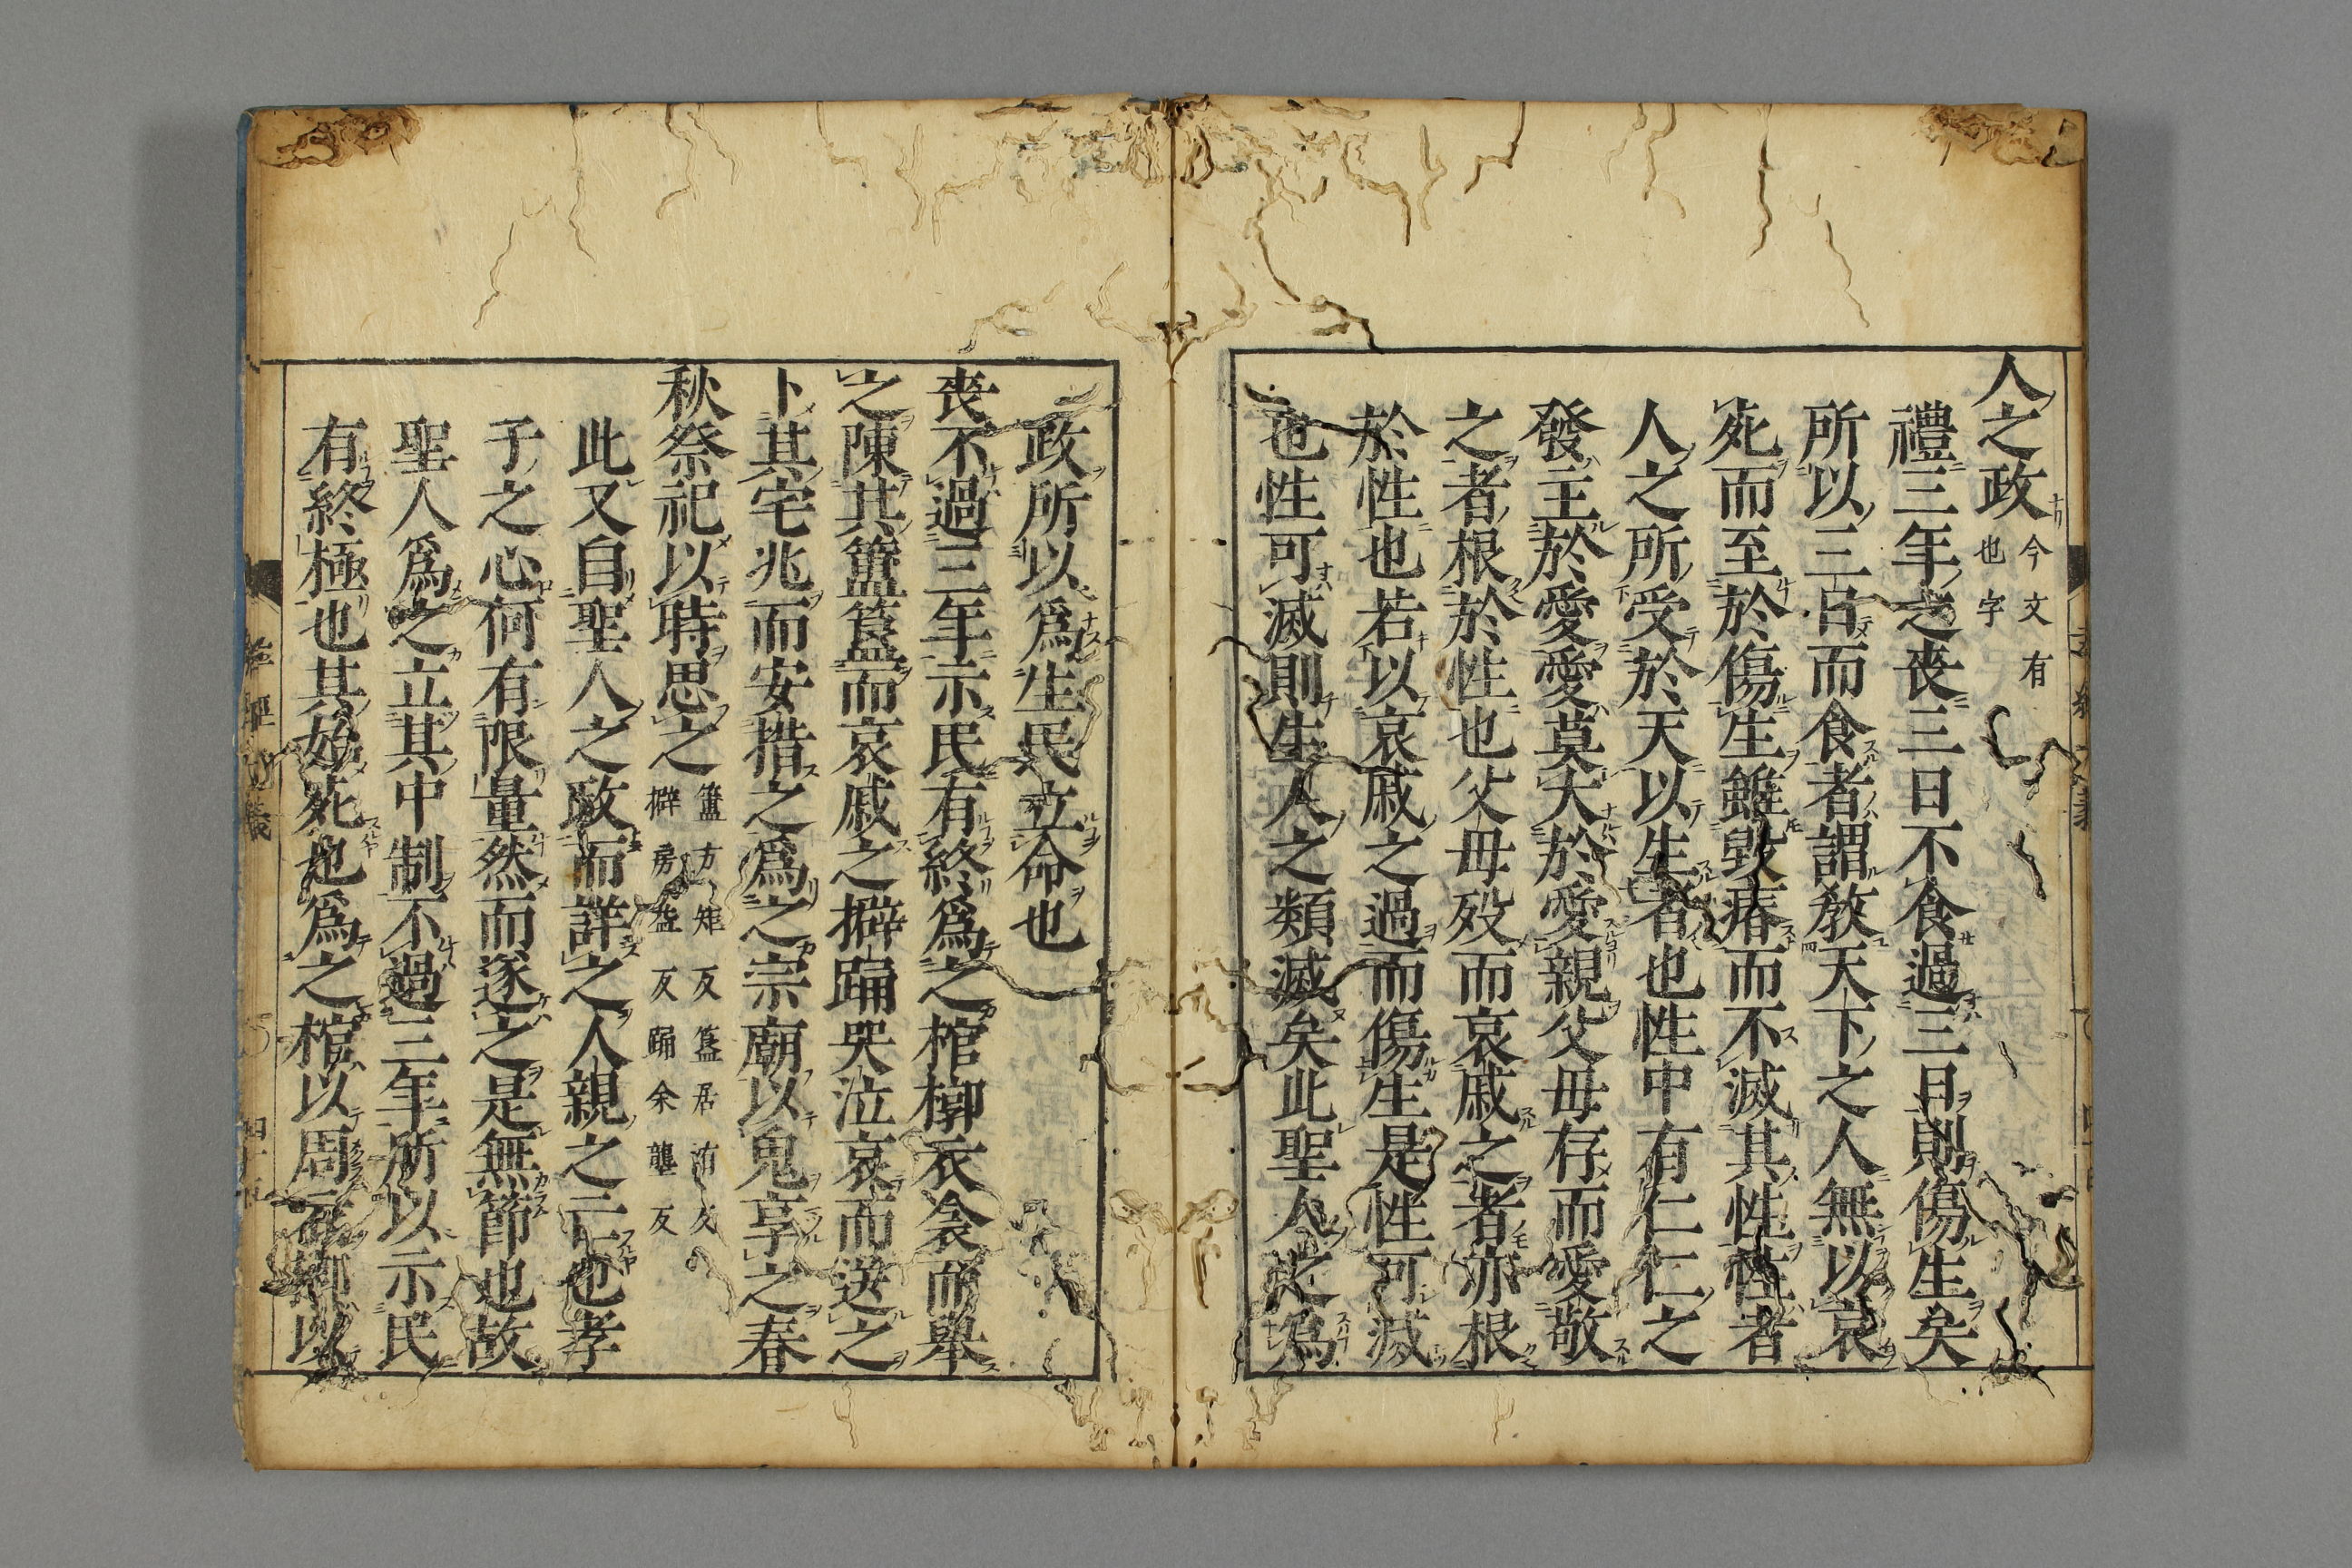 人之政今文有
也字
禮三年之喪三日不食過三日則傷生矣
所以三日而食者謂教天下之人無以哀
死而至於傷生雖毀瘠而不滅其性性者
人之所受於天以生者也性中有仁仁之
發主於愛愛莫大於愛親父母存而愛敬
之者根於性也父母歿而哀戚之者亦根
於性也若以哀戚之過而傷生是性可滅
也性可滅則生人之類滅矣此聖人之為
政所以爲生民立命也
喪不過三年示民有終爲之棺槨衣衾而舉
之陳其簠簋而哀戚之擗踊哭泣哀而送之
卜其宅兆而安措之爲之宗廟以鬼享之春
秋祭祀以時思之簠方矩反簋居洧反
擗房益反踊余隴反
此又自聖人之政而詳之人親之亡也孝
子之心何有限量然而遂之是無節也故
聖人爲之立其中制不過三年所以示民
有終極也其始死也爲之棺以周衣槨以